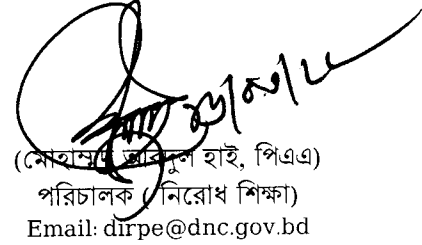 (মোহাম্মদ আবদুল হাই, পিএএ)
পরিচালক (নিরোধ শিক্ষা)
Email: dirpe@dnc.gov.bd